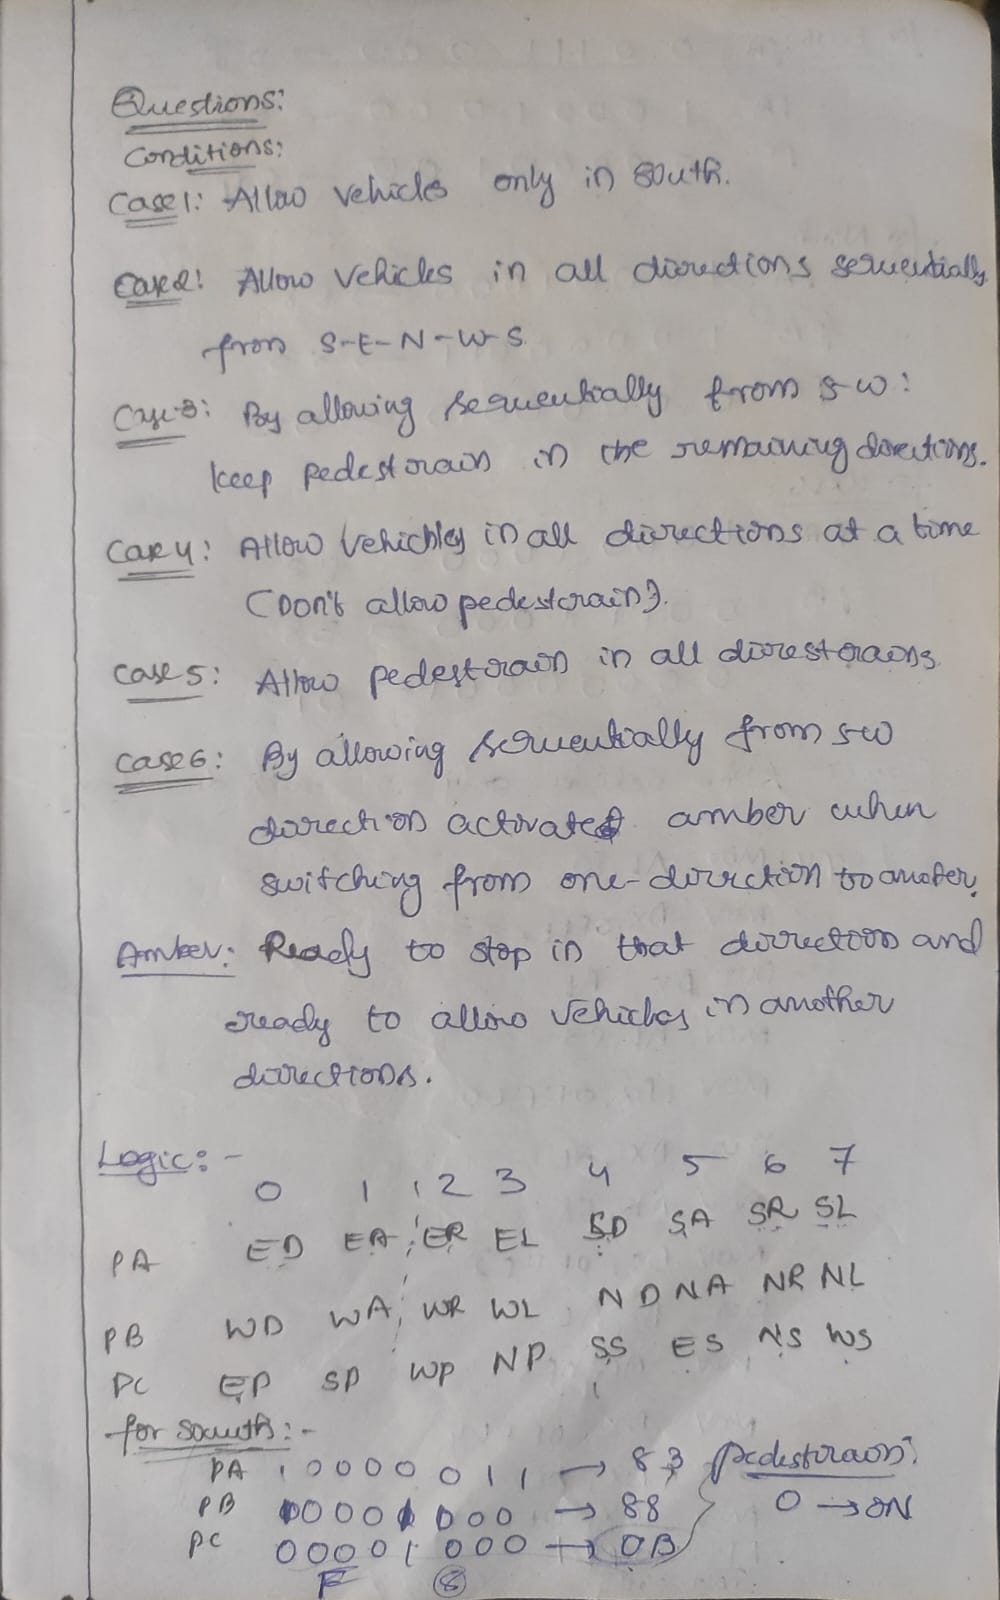 Questions:
Conditions:
Case1: Allow vehicles only in south.
Case2: Allow vehicles in all directions sequentially
from S-E-N-W-S
Case-3: By allowing sequentially from s-w:
keep pedestrain in the remaining directions.
Case 4: Allow vehichles in all directions at a time
(Don't allow pedestrain).
Case 5: Allow pedestrain in all direstorains
Case 6: By allowing sequentially from s-w
direction activated amber when
switching from one-direction to another.
Amber: Ready to stop in that direction and
ready to allow vehichles in another
directions.
Logic:-
0 1 2 3 4 5 6 7
PA ED EA ER EL SD SA SR SL
PB WD WA WR WL ND NA NR NL
PC EP SP WP NP SS ES NS WS
for south:-
PA 1 0 0 0 0 0 1 1 → 83 pedestrain:
PB 1 0 0 0 1 0 0 0 → 88 0 → ON
PC 0 0 0 0 1 0 0 0 → 0B
F 8